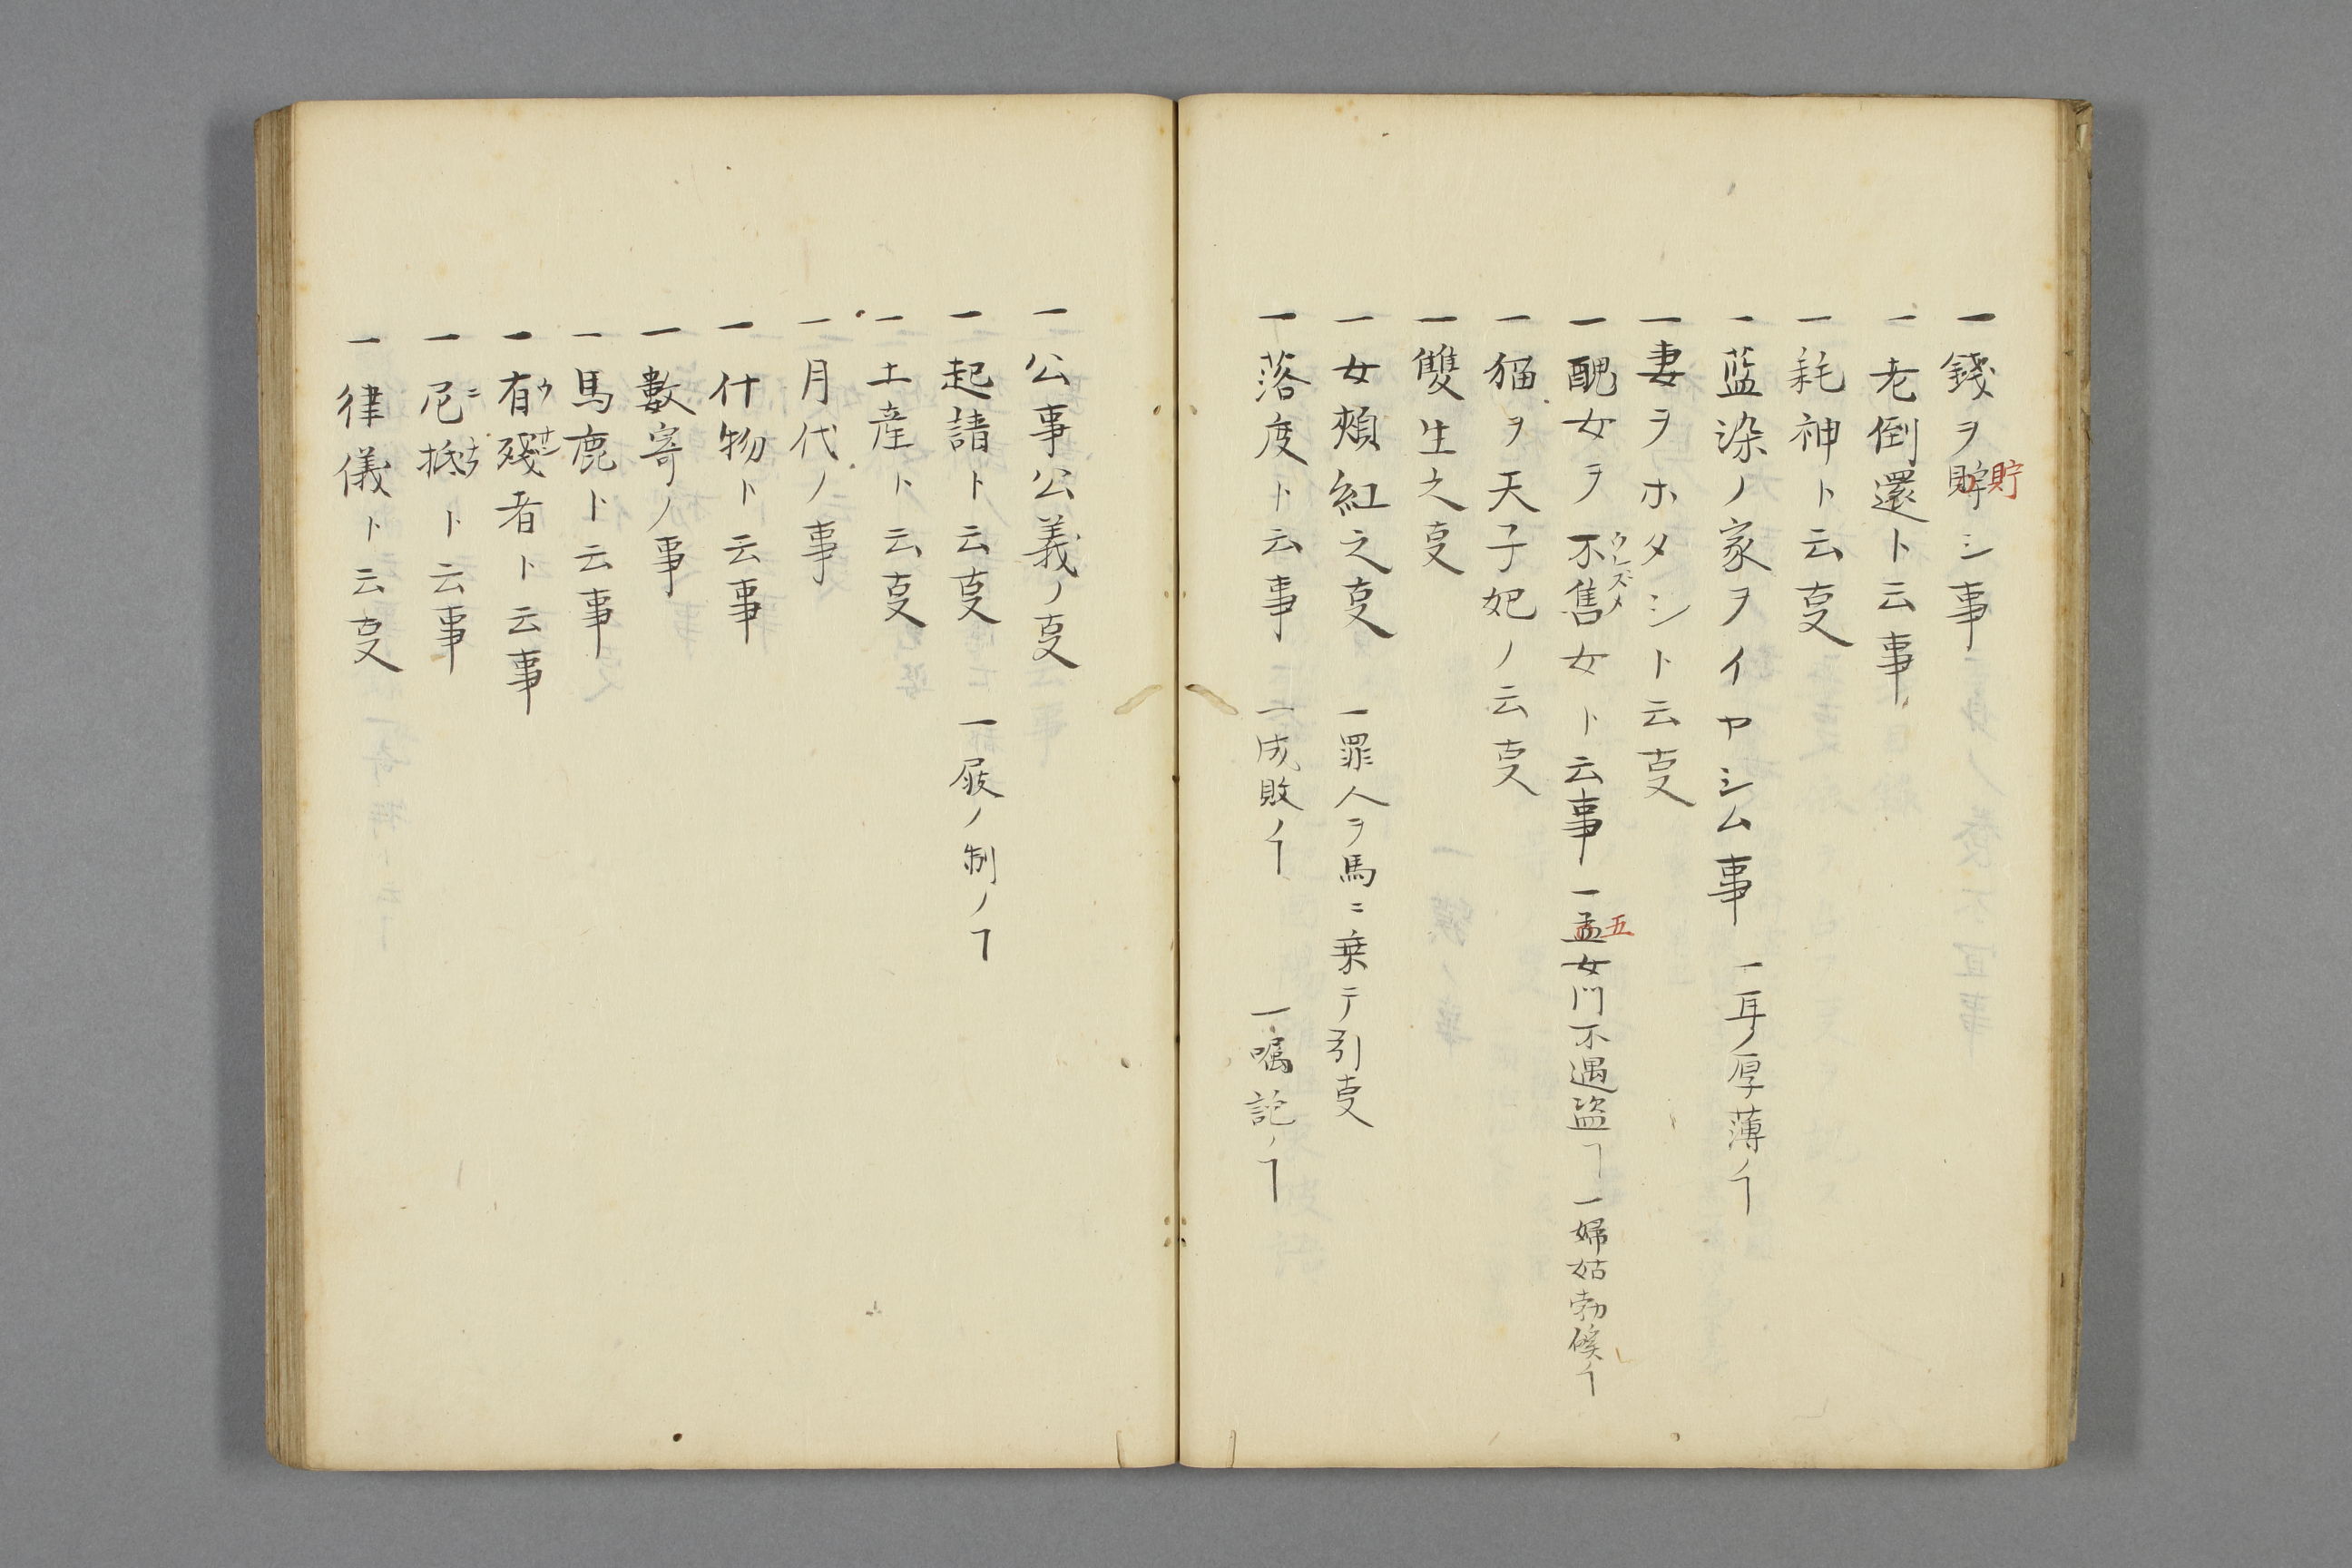 一錢ヲ貯シ事
貯
一老倒還ト云事
一耗神ト云㕝
一藍染ノ家ヲイヤシム事 一耳ノ厚薄ノヿ
一妻ヲホタシト云㕝
一醜女ヲ不售女ト云事 一孟女門不過盜ヿ 一婦姑勃傒ノヿ
ウレズメ
五
一猫ヲ天子妃ノ云㕝
一雙生之㕝
一女頰紅之㕝 一罪人ヲ馬ニ乗テ引㕝
一落度ト云事 一成敗ノヿ 一嘱託ノヿ
一公事公義ノ㕝
一起請ト云㕝 一屐ノ制ノヿ
一土産ト云㕝
一月代ノ事
一什物ト云事
一數寄ノ事
一馬鹿ト云事
一有殘者ト云事
一尼抵ト云事
一律儀ト云㕝